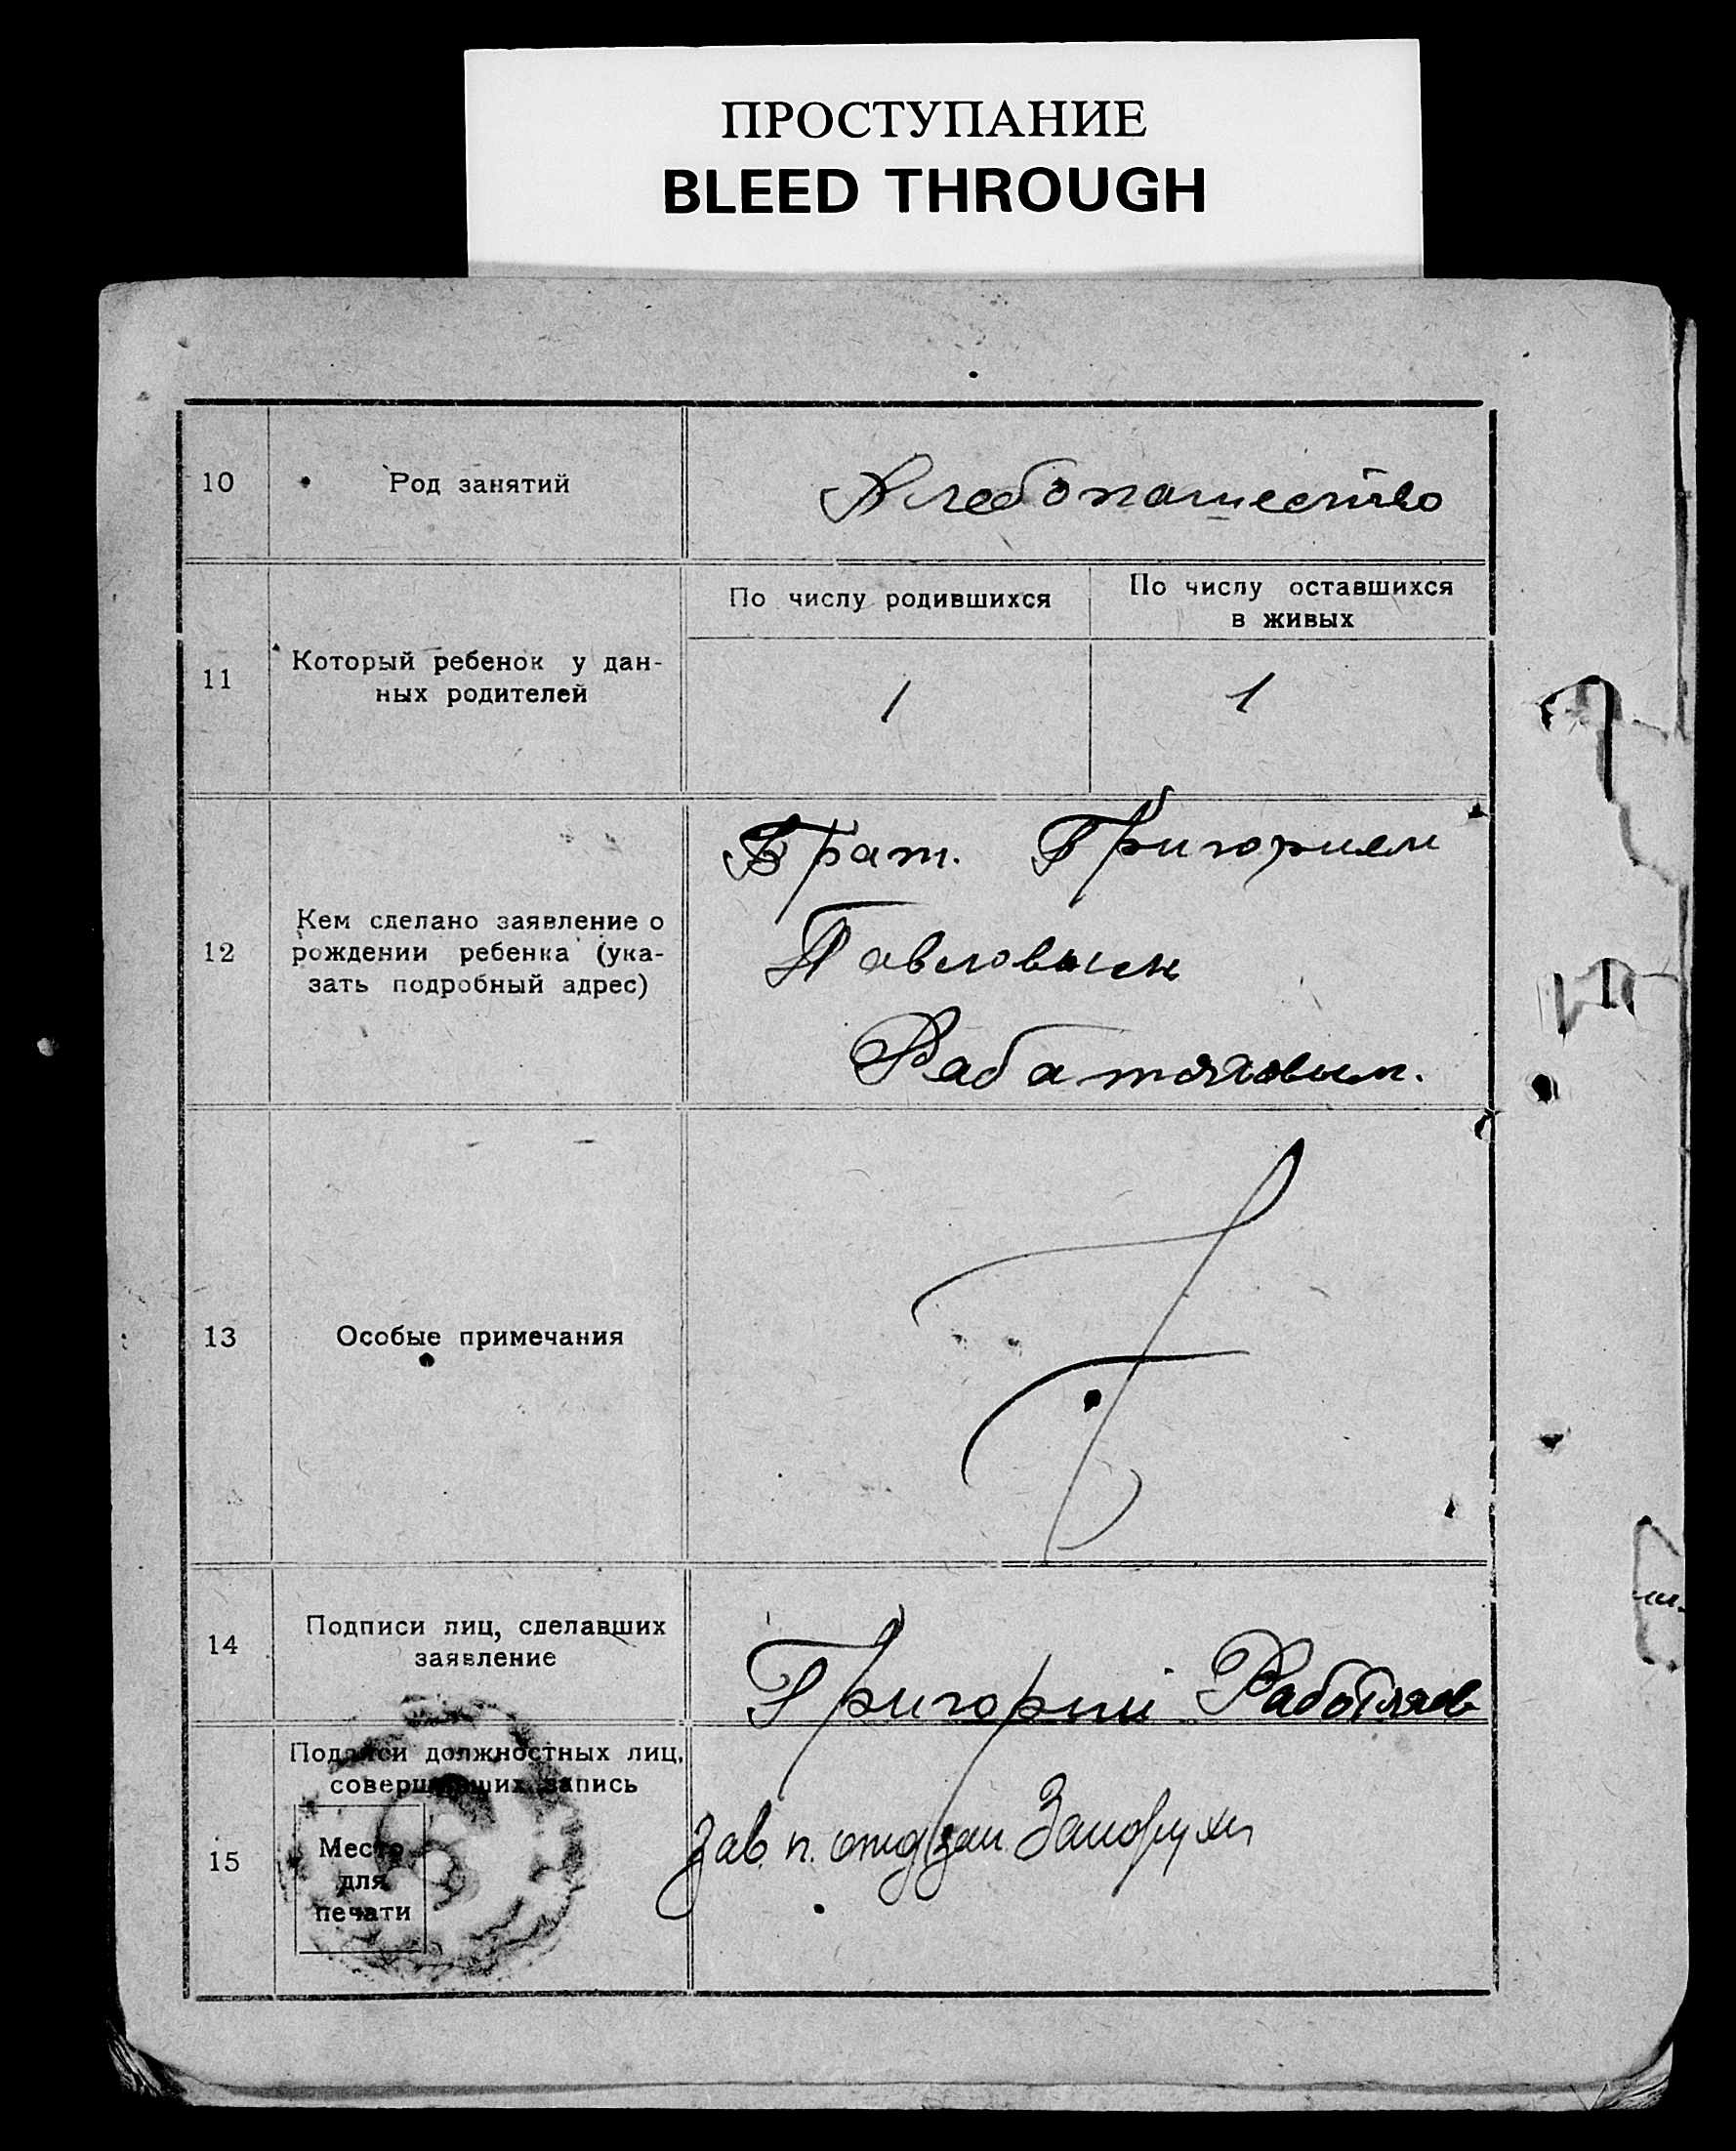 ПРОСТУПАНИЕ
BLEED THROUGH
10
Род занятий
Хлебопашество
11
Который ребенок у дан-
ных родителей
По числу родившихся
По числу оставшихся
в живых
1
1
12
Кем сделано заявление о
рождении ребенка (ука-
зать подробный адрес)
Брат. Григорием
Павловым
13
Особые примечания
14
Подписи лиц, сделавших
заявление
Григорий
15
Подписи должностных лиц,
совершивших запись
Место
для
печати
Зав. п.